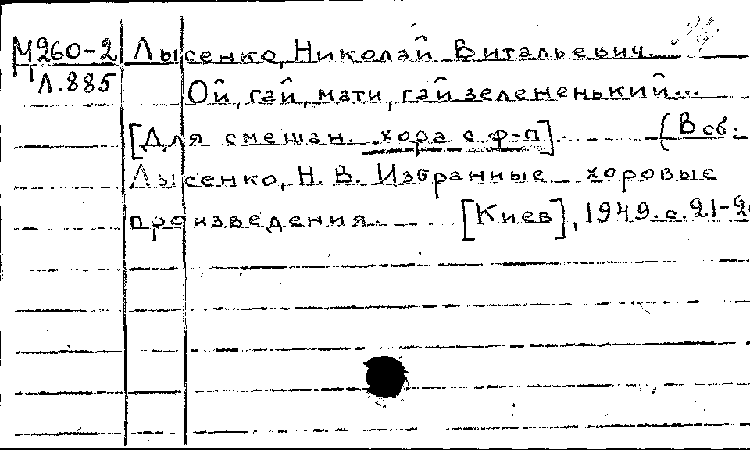 М260-2 Лысенко, Николай Витальевич.
Л.885 Ой, гай, мати, гай зелененький...
[Для смешан. хора с ф-п]. (В сб.:
Лысенко, Н. В. Избранные хоровые
произведения. [Киев], 1949. с. 21-2